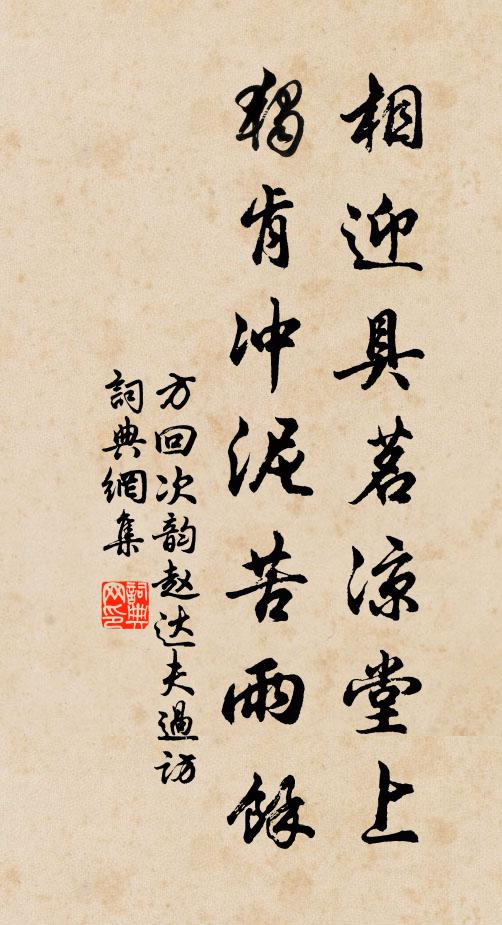 相迎具茗凉堂上
独肯冲泥苦雨馀
方回次韵赵达夫过访
詞典網集
詞典网印